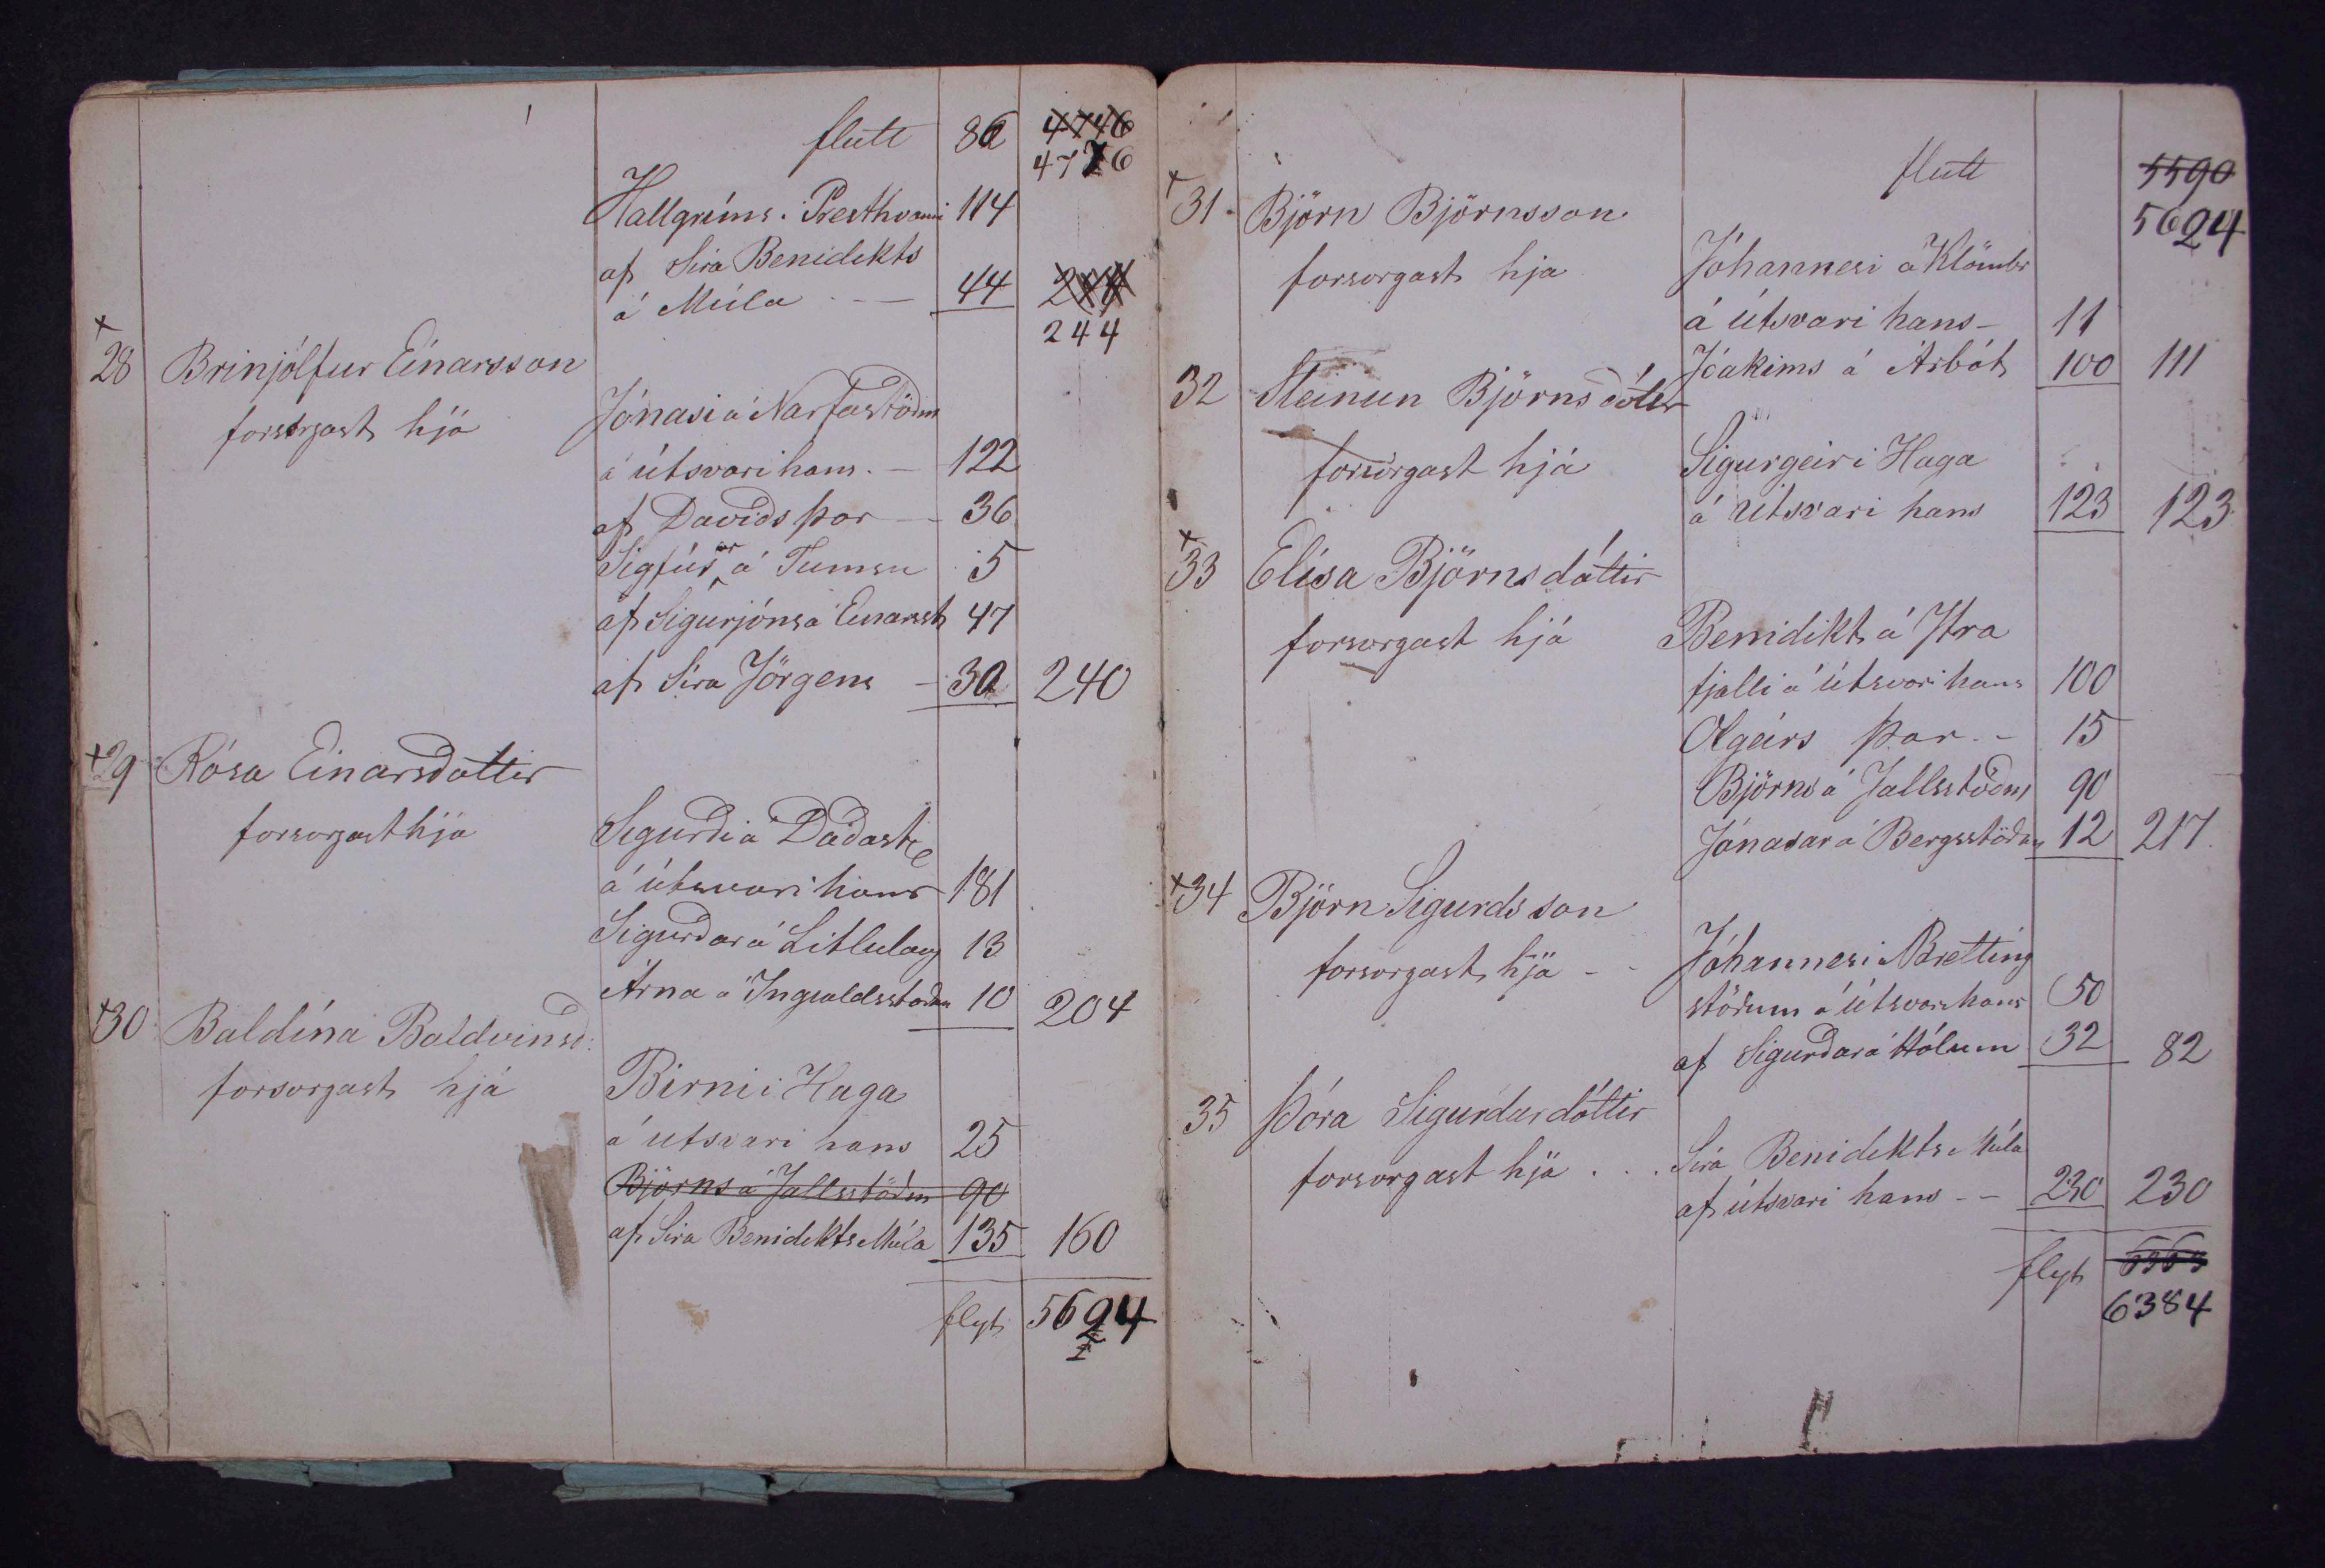 flutt 86 4746
4776
Hallgríms i Presthvami 114
af Síra Benidikts
á Múla - 44
244
+
28 Brinjólfur Einarsson
forsorgast hjá Jónasi á Narfastöðm
á útsvari hans. - 122
af Davids þar - 36
Sigfúsar á Tumsu 5
af Sigurjóns á Einarsst 47
af Síra Jörgens - 30 240
+29 Rósa Einarsdóttir
forsorgast hjá Sigurði á Daðast
á útsvari hans 181
Sigurðar á Litlulaug 13
Árna á Ingvaldsstöðm 10 204
+30 Baldína Baldvinsd:
forsorgast hjá Birni i Haga
á útsvari hans 25
Björns á Jallsstöðm 90
af Síra Benidikts Múla 135 160
flyt 5624
2
flutt 5590
5624
+
31 Björn Björnsson
forsorgast hja Jóhannesi á Klömbr
á útsvari hans - 11
Jóakims á Árbót 100 111
32 Steinun Björnsdóttir
forsorgast hjá Sigurgeir i Haga
á útsvari hans 123 123
+
33 Elísa Björnsdóttir
forsorgast hjá Benidikt á Ytra
fjalli á útsvari hans 100
Olgeirs þar - 15
Björns á Jallsstöðm 90
Jónasar á Bergsstöðm 12 217
+34 Björn Sigurdsson
forsorgast hjá - - Jóhannesi Bretting
stöðum á útsvari hans 50
af Sigurðar á Hólum 32 82
35 Þóra Sigurdardóttir
forsorgast hjá . . . Síra Benidikts Múla
af útsvari hans - - 230 230
flyt
6384